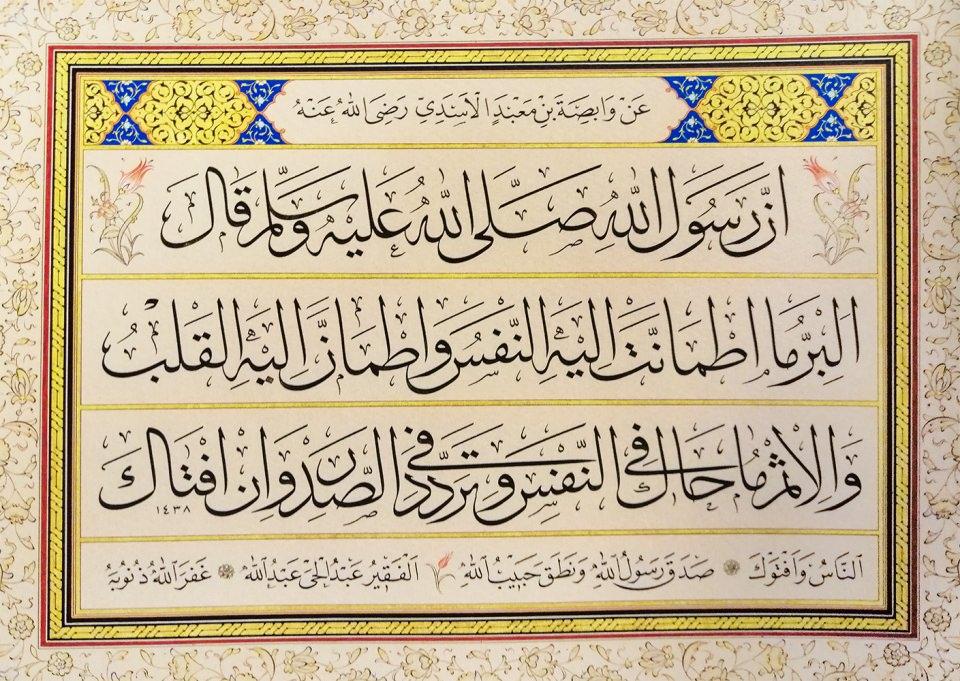 عَنْ وَابِصَةَ بْنِ مَعْبَدٍ الْاَسَدِيِّ رَضِيَ اللّٰهُ عَنْهُ
اَنَّ رَسُولَ اللّٰهِ صَلَّى اللّٰهُ عَلَيْهِ وَسَلَّمَ قَالَ
اَلْبِرُّ مَا اطْمَاَنَّتْ اِلَيْهِ النَّفْسُ وَاطْمَاَنَّ اِلَيْهِ الْقَلْبُ
وَالْاِثْمُ مَا حَاكَ فِي النَّفْسِ وَتَرَدَّدَ فِي الصَّدْرِ وَاِنْ اَفْتَاكَ ١٤٣٨
النَّاسُ وَاَفْتَوْكَ صَدَقَ رَسُولُ اللّٰهِ وَنَطَقَ حَبِيبُ اللّٰهِ اَلْفَقِيرُ عَبْدُ الْحَيِّ عَبْدُ اللّٰهِ غَفَرَ اللّٰهُ ذُنُوبَهُ